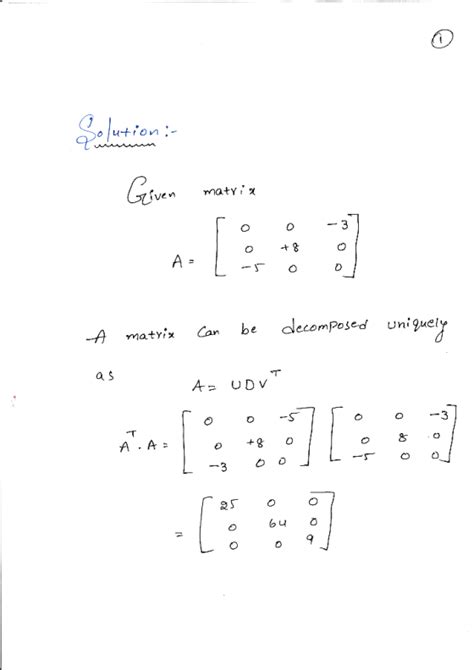 1
Solution :-
Given matrix
A = [ 0 0 -3
0 +8 0
-5 0 0 ]
A matrix can be decomposed uniquely
as
A = UDV^T
A^T . A = [ 0 0 -5 ] [ 0 0 -3
0 +8 0 0 8 0
-3 0 0 ] -5 0 0 ]
= [ 25 0 0
0 64 0
0 0 9 ]